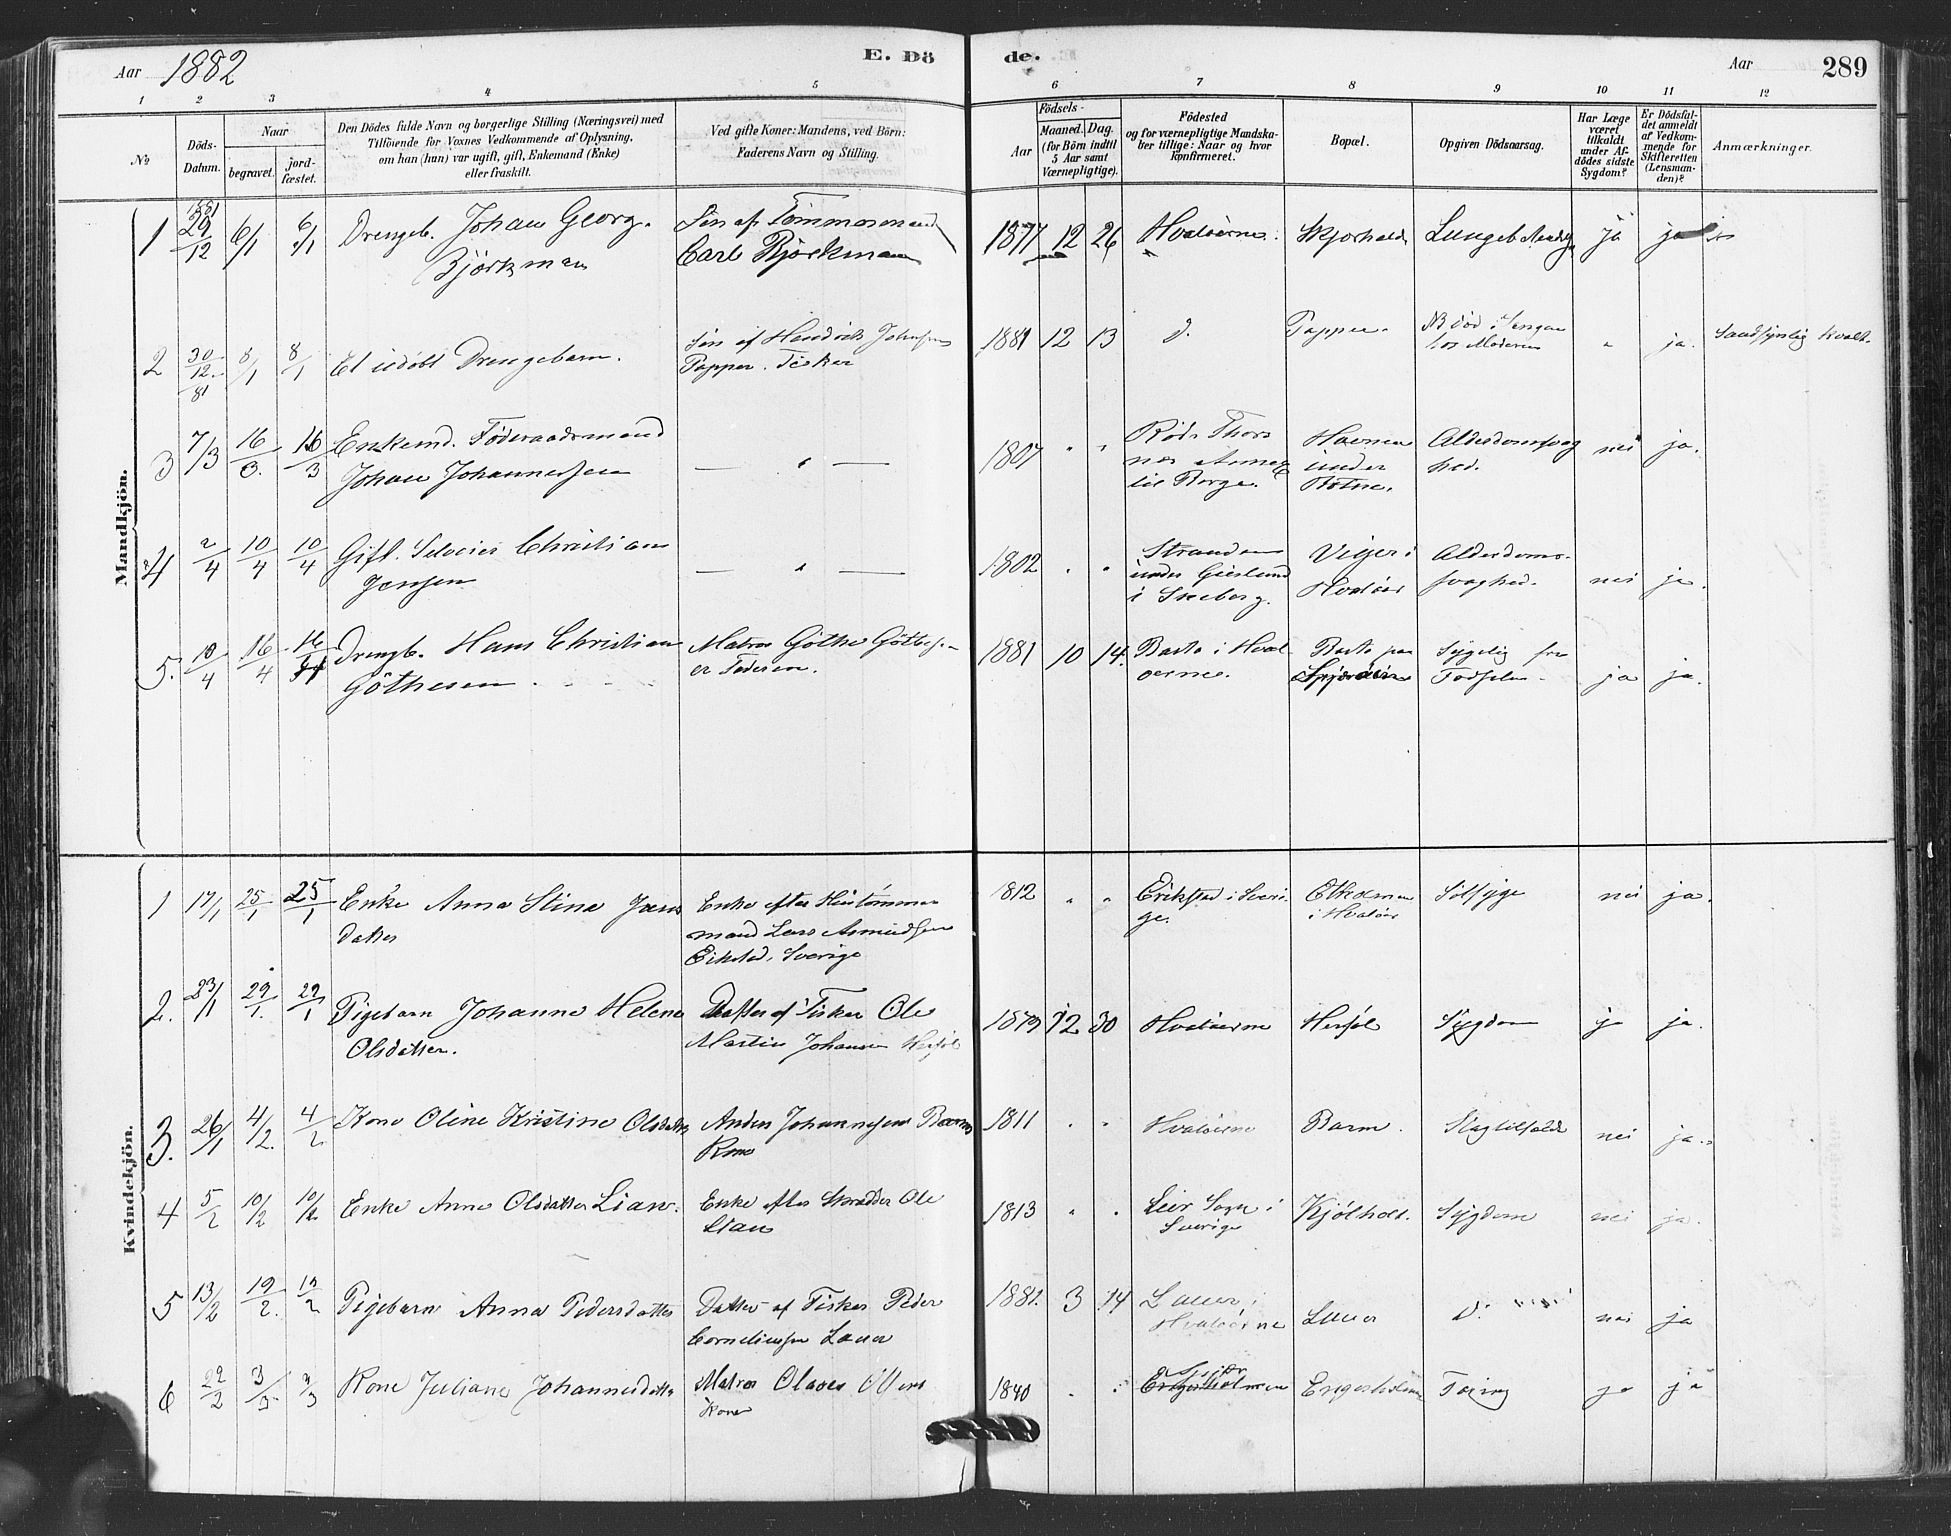 Aar 1882
E. Dö
de.
Aar
289
1 2 3 4 5 6 7 8 9 10 11 12
No
Döds-
Datum.
Naar
begravet.
jord-
fæstet.
Den Dödes fulde Navn og borgerlige Stilling (Næringsvei) med
Tilföiende for Voxnes Vedkommende af Oplysning,
om han (hun) var ugift, gift, Enkemand (Enke)
eller fraskilt.
Ved gifte Koner: Mandens, ved Börn:
Faderens Navn og Stilling.
Födsels-
Aar
Maaned. Dag.
(for Börn indtil
5 Aar samt
Værnepligtige).
Födested
og for værnepligtige Mandska-
ber tillige: Naar og hvor
konfirmeret.
Bopæl.
Opgiven Dödsaarsag.
Har Læge
været
tilkaldt
under Af-
dödes sidste
Sygdom?
Er Dödsfal-
det anmeldt
af Vedkom-
mende for
Skifteretten
(Lensman-
den)?
Anmærkninger.
Mandkjön.
1 1881 29/12 6/1 6/1 Drengeb. Johan Georg Björkman
Sön af Tömmermand
Carl Björkman
1877 12 26 Hvalöerne. Skjærhalde ja ja
2 30/12 81 8/1 8/1 Et udöbt Drengebarn.
Sön af Hendrik Johnsen
Papper. Fisker
1881 12 13 d. Papper. Död i Sengen
hos Moderen " ja. Sandsynlig kvalt.
3 7/3 16/3 16/3 Enkemd. Föderaadsmand
Johan Johannessen
— " —
1807 " " til Borge. Havnen
under
Botne. Alderdomssvag
hed. nei ja.
4 2/4 10/4 10/4 Gift. Christian
Jensen
— " —
1802 " " Stranden
under
i Skeberg. Viger i
Hvalöer Alderdoms-
svaghed. nei ja.
5. 10/4 16/4 16/4 Drengb. Hans Christian
Göthesen
Matros Göthe Göthes-
er Faderen.
1881 10 14. Basto i Hval
öerne. Basto paa
Spjæröen Sygelig fra
Födselen. ja ja.
Kvindekjön.
1 17/1 25/1 25/1 Enke Anna Stina Jans
datter
Enke efter Hustömmer
mand Lars Asmundsen
Eikstad, Sverige
1812 " " Erikstad i Sveri
ge.
i Hvalöer Sotsyge nei ja.
2. 23/1 29/1 29/1 Pigebarn Johanne Helene
Olsdatter.
Datter af Fisker Ole
Martin Johansen Herföl
1879 12 30 Hvalöerne Herföl Sygdom ja ja.
3. 26/1 4/2 4/2 Kone Oline Kristine Olsdatter
Anders Johannesens Barm
Kone
1811 " " Hvalöerne Barm. Slagtilfælde nei ja.
4 5/2 10/2 10/2 Enke Anne Olsdatter Lian.
Enke efter Skrædder Ole
Lian
1813 " " Leir Sogn i
Sverige Kjölholt. Sygdom nei ja.
5 13/2 19/2 19/2 Pigebarn Anna Pedersdatter
Datter af Fisker Peder
Corneliussen Lauer
1881. 3 14 Lauer i
Hvalöerne Lauer D. nei ja
6 22/2 3/3 3/3 Kone Juliane Johannesdatter
Matros Olaves
Kone
1840 " " Engesholmen Tæring ja ja